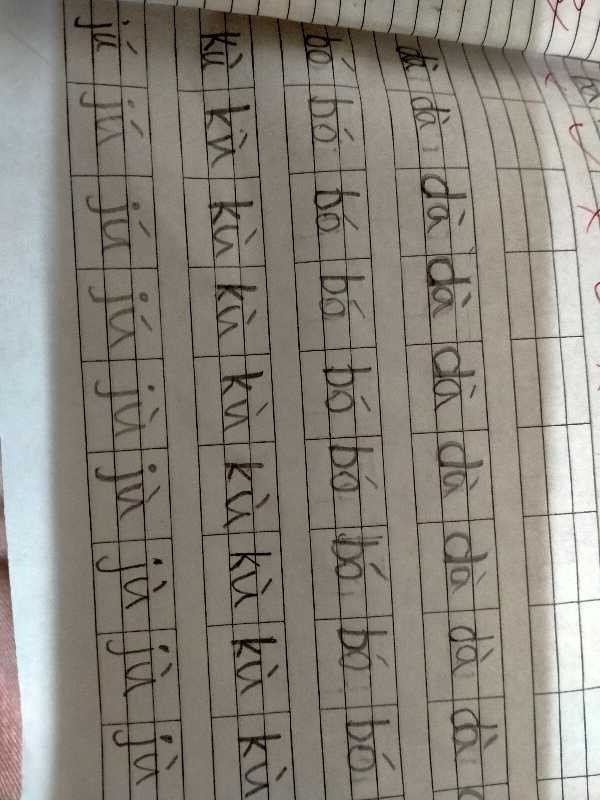 dà dà dà dà dà dà dà dà dà
bó bó bó bó bó bó bó bó bó
kù kù kù kù kù kù kù kù kù
jú jú jú jú jù jù jù jù jù